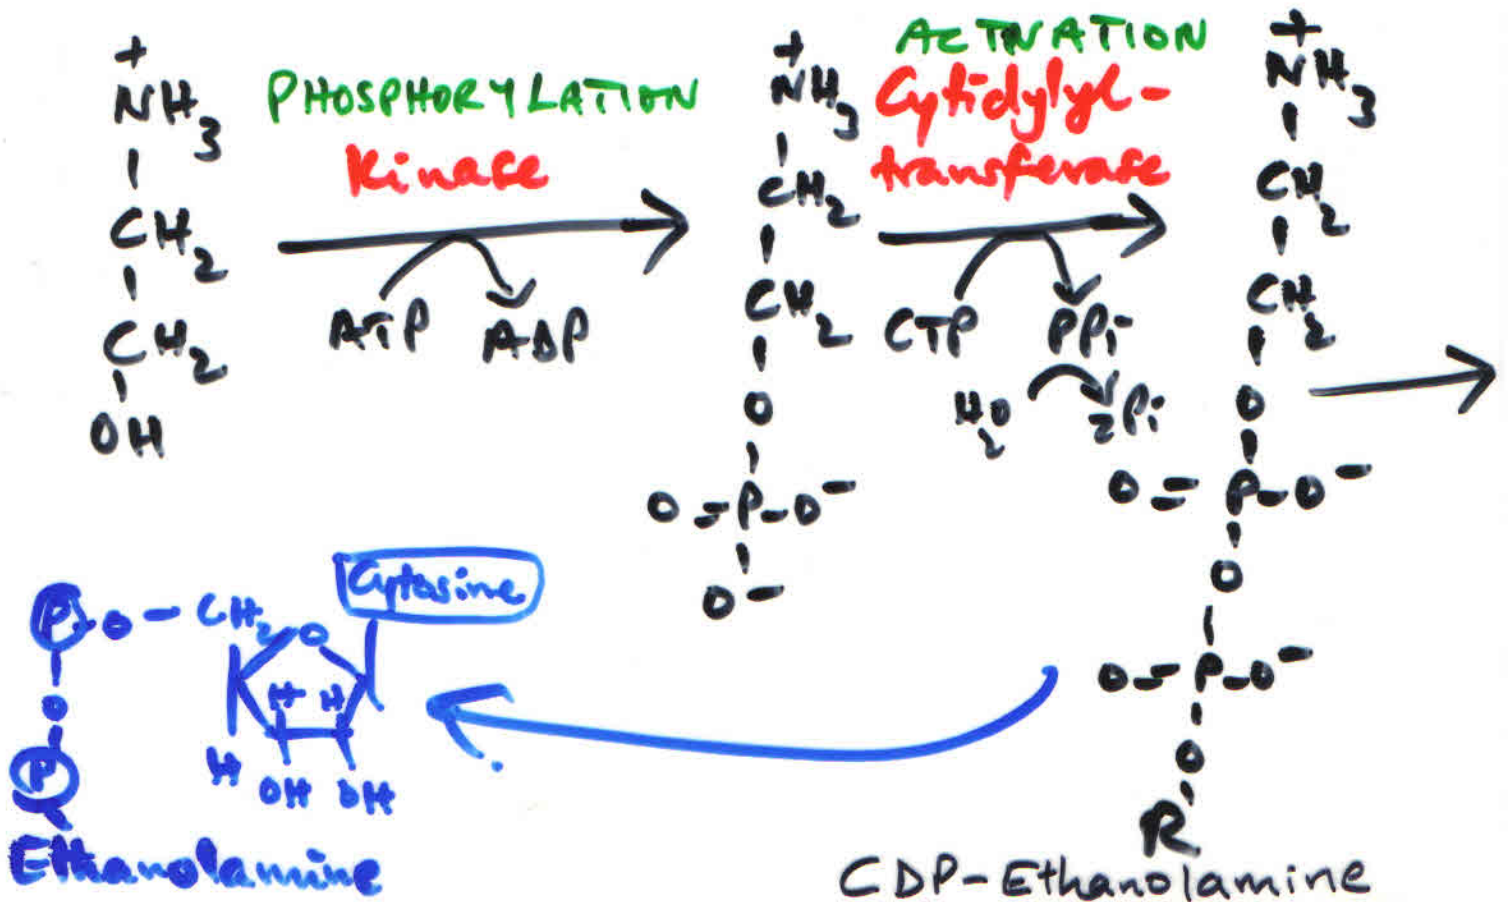 +
NH3
CH2
CH2
OH
PHOSPHORYLATION
Kinase
ATP ADP
+
NH3
CH2
CH2
O
O=P-O-
O-
ACTIVATION
Cytidylyl-
transferase
CTP PPi
H2O 2Pi
+
NH3
CH2
CH2
O
O=P-O-
O
O=P-O-
O
R
CDP-Ethanolamine
Cytosine
P O-CH2 O
O
H H
H
OH OH
P
Ethanolamine